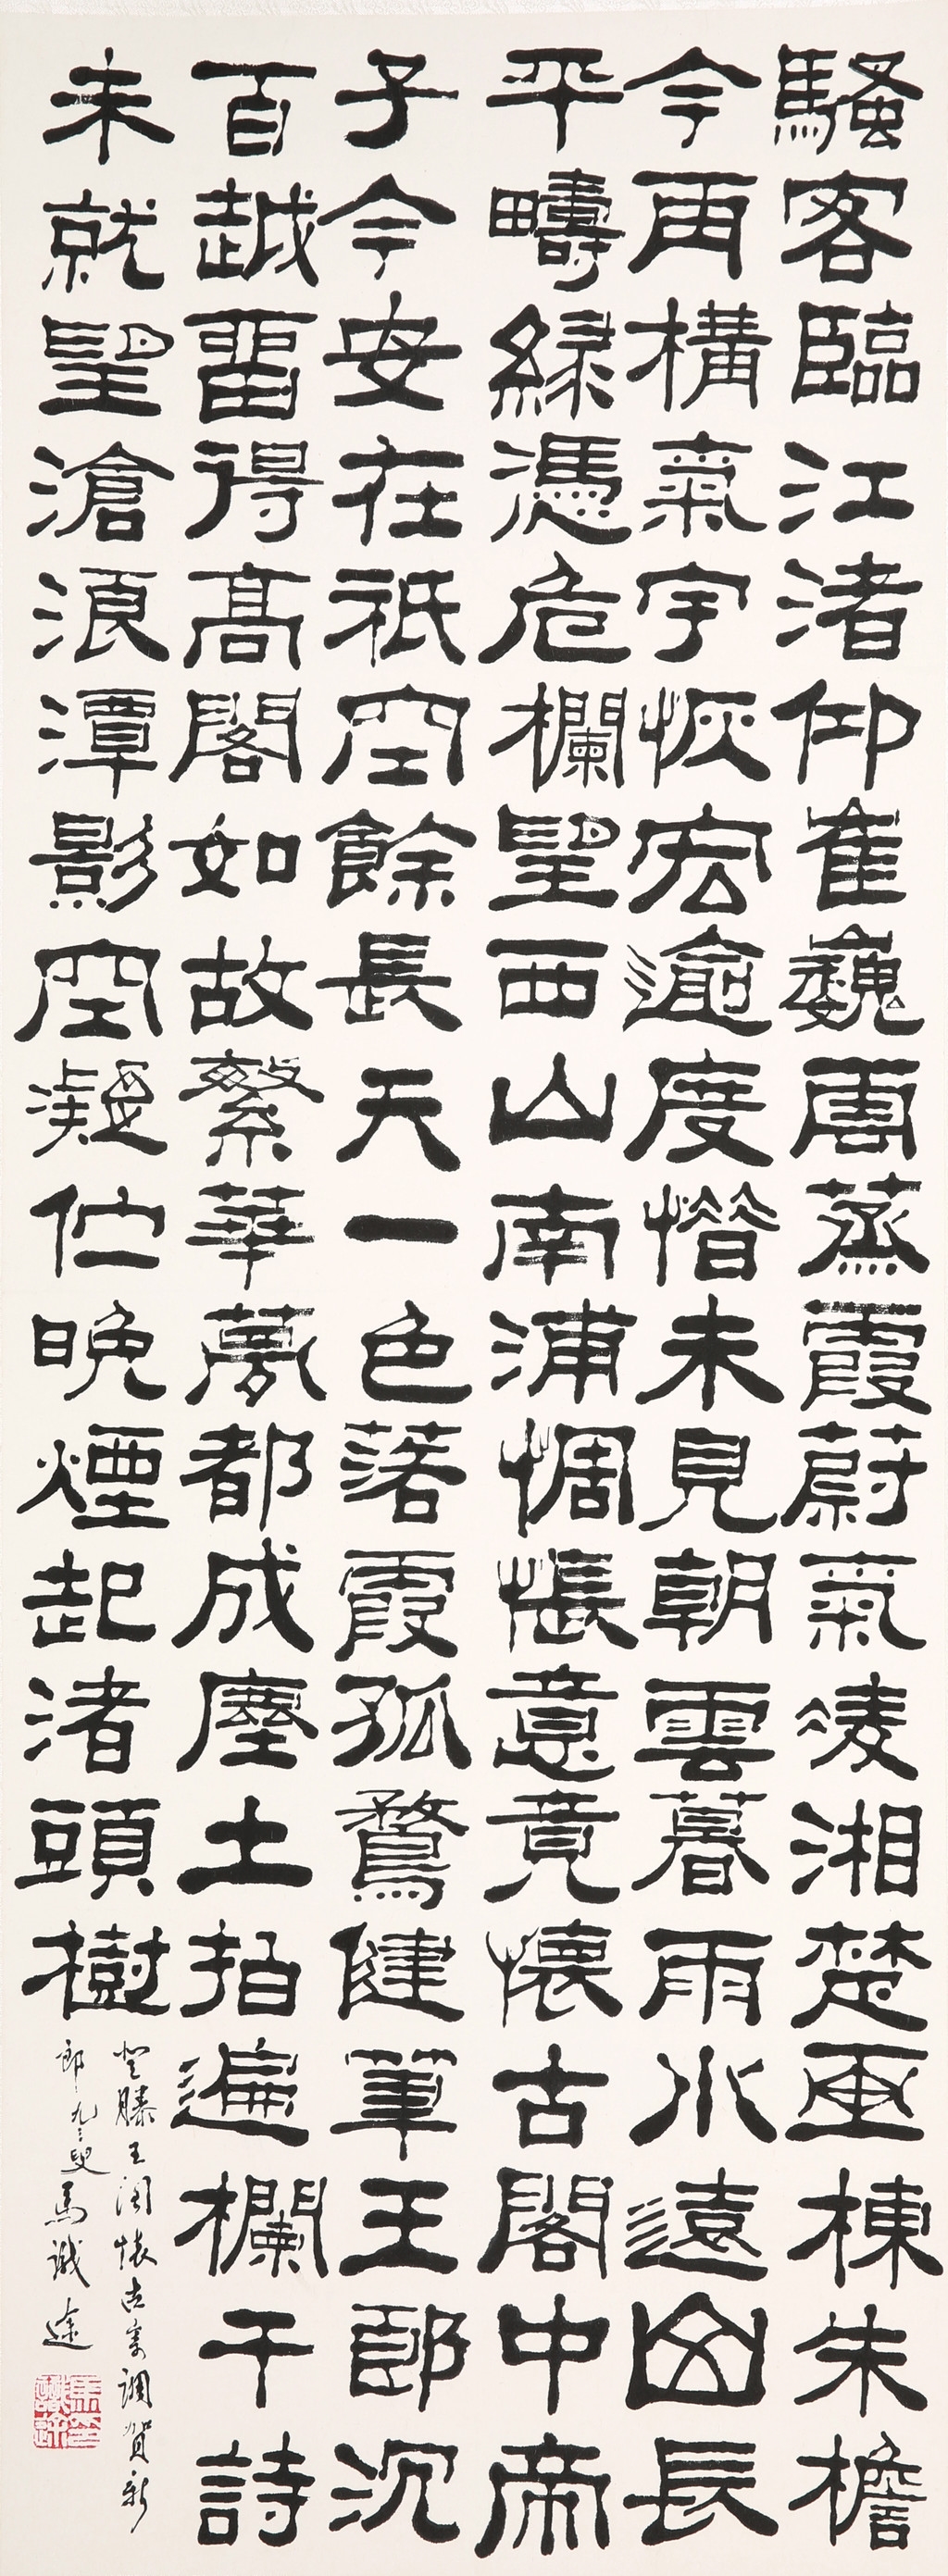 騷客臨江渚仰崔巍雲蒸霞蔚氣淩湘楚畫棟朱檐
今再構氣宇恢宏逾度惜未見朝雲暮雨水遠山長
平疇綠憑危欄望西山南浦惆悵意竟懷古閣中帝
子今安在祇空餘長天一色落霞孤鶩健筆王郎沉
百越留得高閣如故繁華夢都成塵土拍遍欄干詩
未就望滄浪潭影空凝伫晚煙起渚頭樹
登滕王閣懷古寄調賀新
郎九三叟馬識途